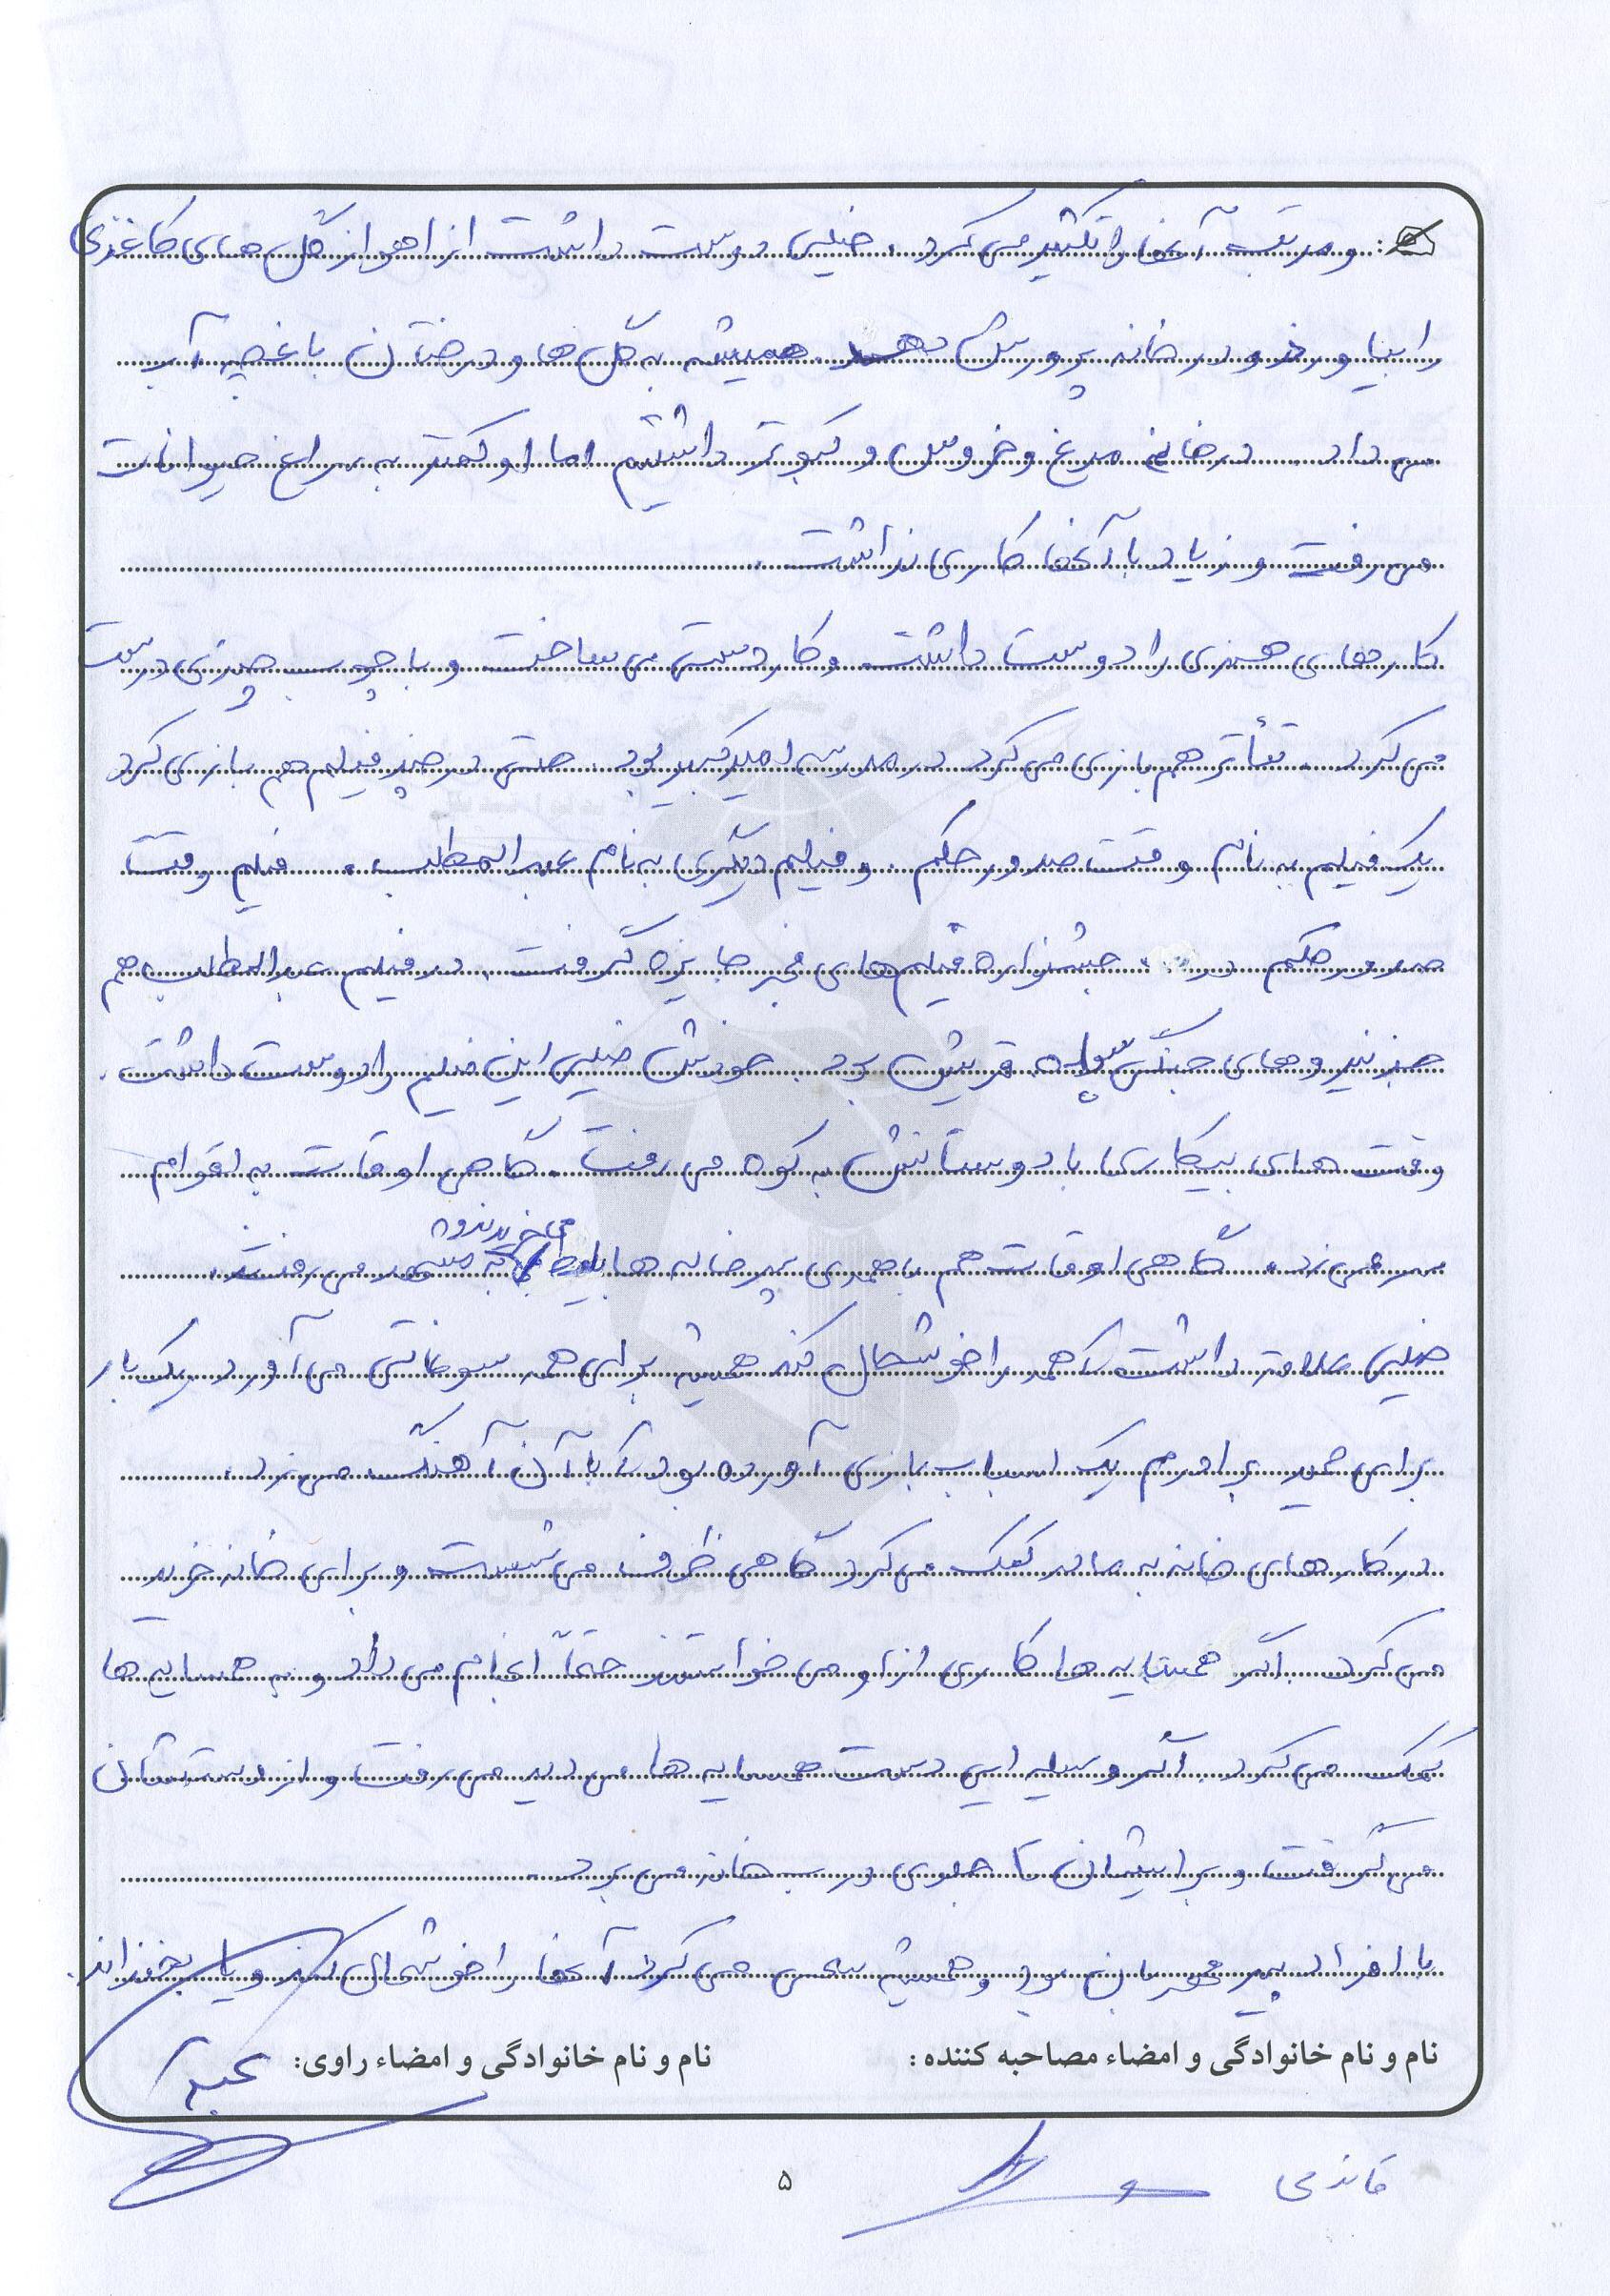 و مرتب آنها را تکثیر می کرد. خیلی دوست داشت از اهواز گل های کاغذی
را بیاورد و در خانه پرورش دهد. همیشه به گل ها و درختان باغچه آب
می داد. در خانه مرغ و خروس و کبوتر داشتیم اما او کمتر به سراغ حیوانات
می رفت و زیاد با آنها کاری نداشت.
کارهای هنری را دوست داشت و کاردستی می ساخت و با چوب چیزی درست
می کرد. تئاتر هم بازی می کرد در مدرسه امیرکبیر بود. حتی در چند فیلم هم بازی کرد
یک فیلم به نام وقت صدور حکم. و فیلم دیگری به نام عبدالمطلب. فیلم وقت
صدور حکم در جشنواره فیلم های فجر جایزه گرفت. در فیلم عبدالمطلب هم
جزء نیروهای جنگی سپاه قریش بود. خودش خیلی این فیلم را دوست داشت.
وقت های بیکاری با دوستانش به کوه می رفت. گاهی اوقات به اقوام
سر می زد. گاهی اوقات هم با مهدی پسرخاله ها بلیط می خریدند و به مشهد می رفتند.
خیلی علاقه داشت که همه را خوشحال کند همیشه برای همه سوغاتی می آورد یک بار
برای حمید برادرم یک اسباب بازی آورده بود که با آن آهنگ می زد.
در کارهای خانه به مادر کمک می کرد گاهی ظرف می شست و برای خانه خرید
می کرد. اگر همسایه ها کاری از او می خواستند حتماً انجام می داد و به همسایه ها
کمک می کرد. اگر وسیله ایی دست همسایه ها می دید می رفت و از دستشان
می گرفت و برایشان تا جلوی درب خانه می برد.
با افراد پیر مهربان بود و همیشه سعی می کرد آنها را خوشحال کند و یا بخنداند.
نام و نام خانوادگی و امضاء مصاحبه کننده :
نام و نام خانوادگی و امضاء راوی:
۵